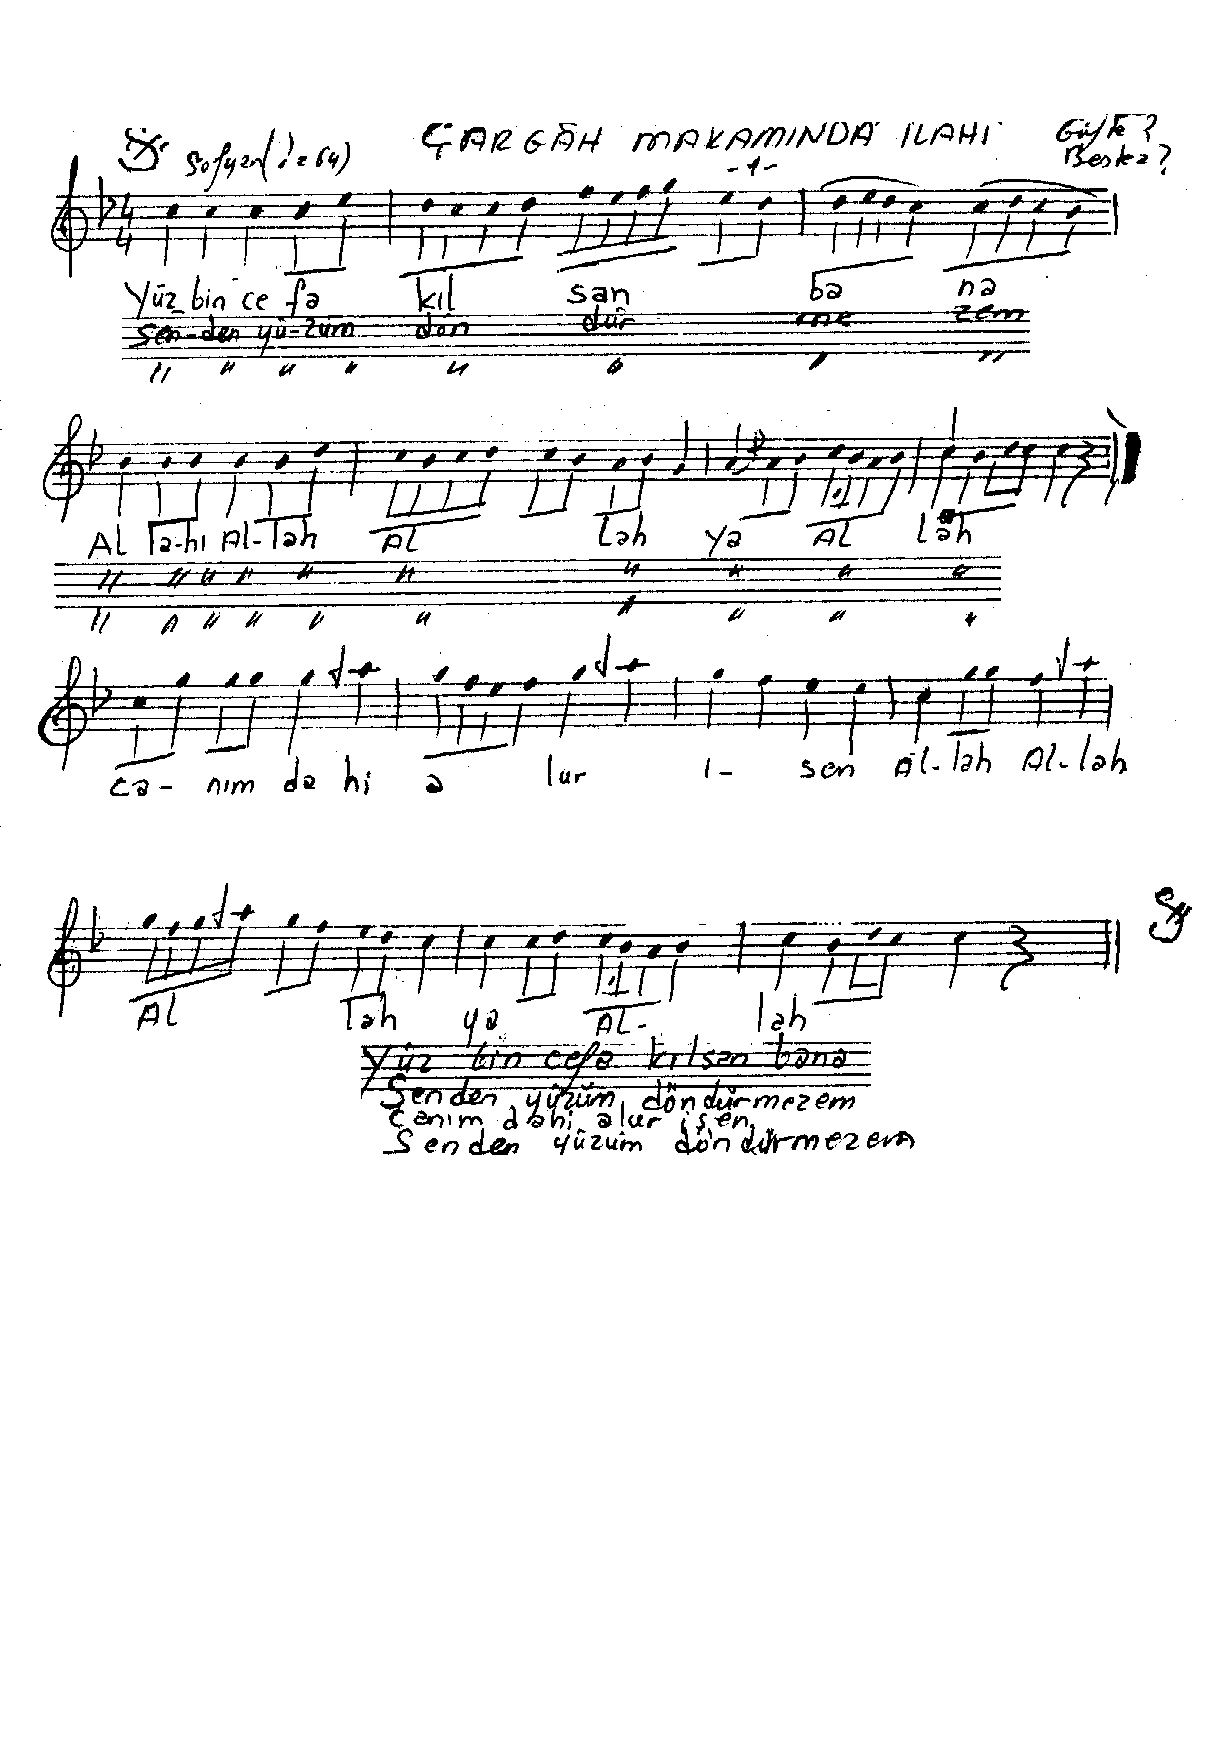 ÇARGÂH MAKAMINDA İLAHİ Güfte?
Sofyan (♩=64) -1- Beste?
4
4
Yüz bin ce fa kıl san ba na
Sen-den yü-züm dön dür me zem
" " " " " " " "
Al la-hı Al-lah Al lah ya Al lah
" " " " " " " " " "
" " " " " " " " " "
ca- nım da hi a lur i- sen Al-lah Al-lah
Al lah ya Al- lah
Yüz bin cefa kılsan bana
Senden yüzüm döndürmezem
Canım dahi alur isen
Senden yüzüm döndürmezem